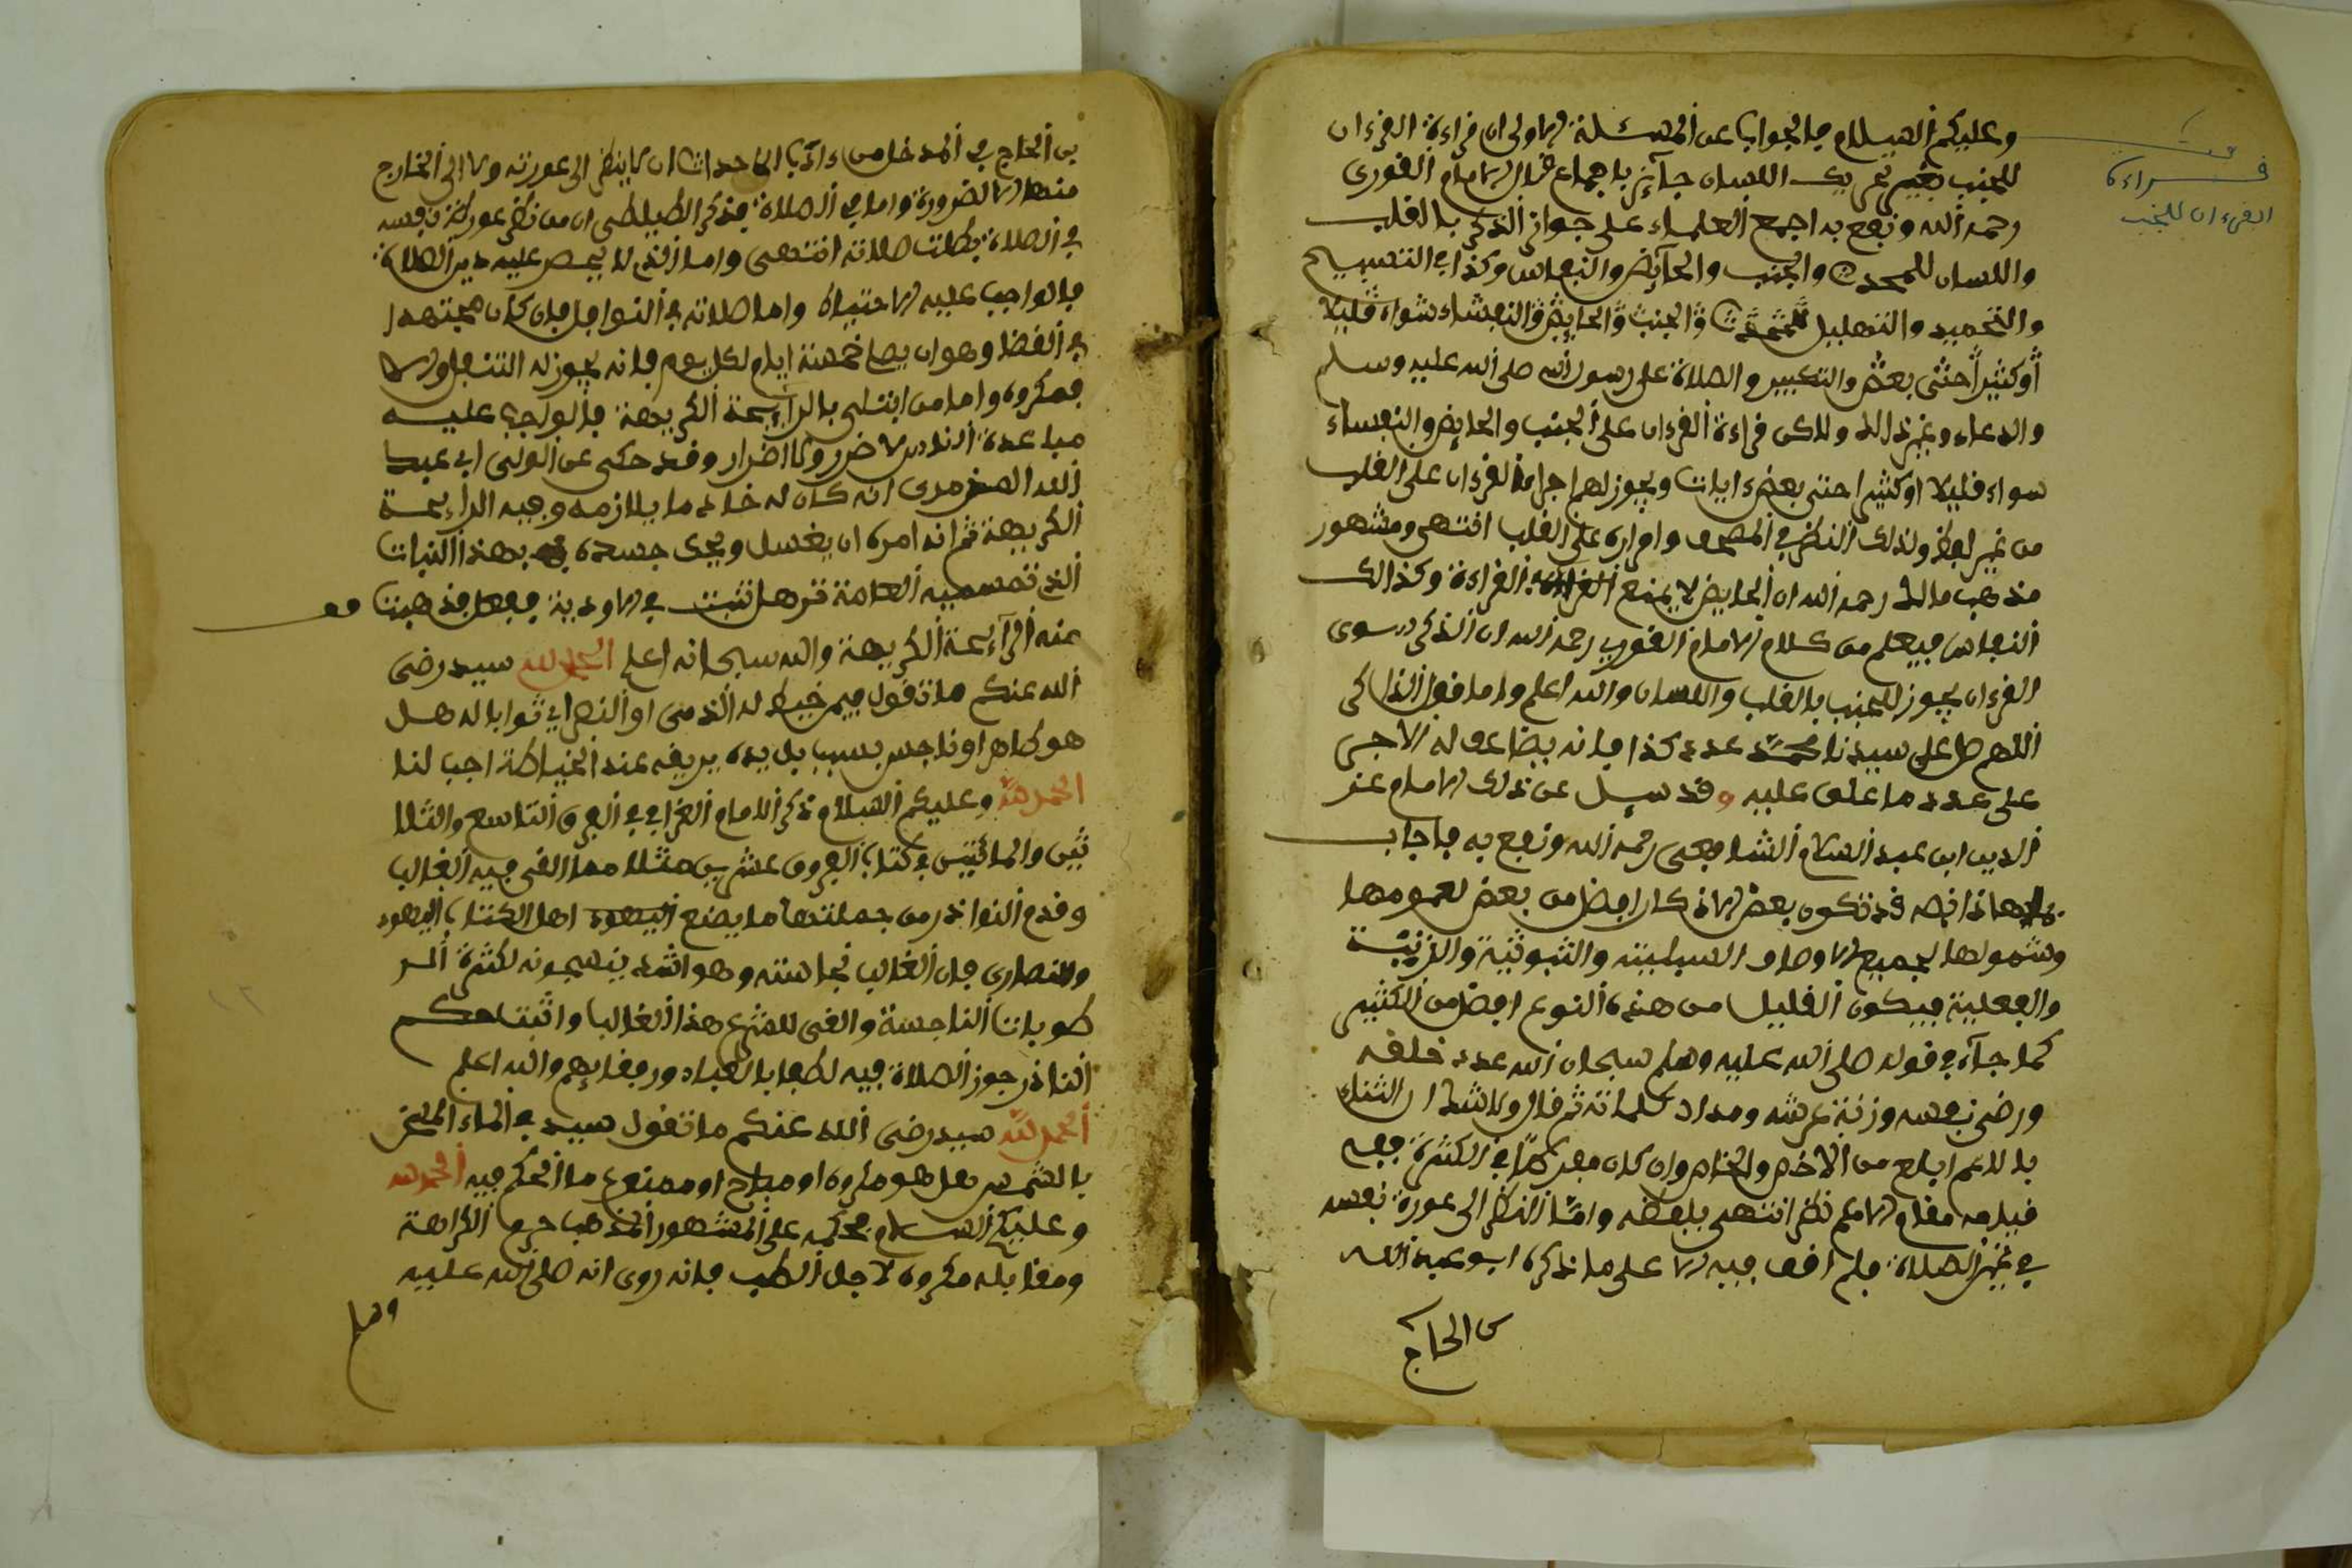 وعليكم السلام فالجواب عن المسئلة الاولى ان قراءة القرءان
للجنب بغير تحريك اللسان جآئز باجماع قال الامام النووى
رحمه الله ونفع به اجمع العلماء على جواز الذكر بالقلب
واللسان للمحدث والجنب والحآيض والنفاس وكذا في التسبيح
والتحميد والتهليل للمحدث والجنب والحايض والنفساء سواء قليلا
أو كثيرا حتى بعض والتكبير والصلاة على رسول الله صلى الله عليه وسلم
والدعاء وغير ذالك ولاكن قراءة القرءان على الجنب والحايض والنفساء
سواء قليلا او كثيرا حتى بعض ءايات ويجوز لهم اجراء القرءان على القلب
من غير لفظ وكذلك النظر في المصحف وامراره على القلب انتهى ومشهور
مذهب مالك رحمه الله ان الحايض لا يمنع القراءة وكذالك
النفاس فيعلم من كلام الامام النووى رحمه الله ان الذكر سوى
القرءان يجوز للجنب بالقلب واللسان والله اعلم واما قول الذاكر
اللهم صل على سيدنا محمد عدد كذا فانه يضاعف له الاجر
على عدد ما علق عليه وقد سيل عن ذلك الامام عز
الدين ابن عبد السلام الشافعى رحمه الله ونفع به فاجاب
هاذا نصه قد تكون بعض الاذكار افضل من بعض لعمومها
وشمولها لجميع الاوصاف السلبية والثبوتية والذتية
والفعلية فيكون القليل من هذه النوع افضل من الكثير
كما جآء في قوله صلى الله عليه وسلم سبحان الله عدد خلقه
ورضى نفسه وزنة عرشه ومداد كلماته ثم قال ولا شك ان الثناء
بالاعم ابلغ من الاخص والخاص وان كان في الكثرة ففي
مقام الاعم نظر انتهى بلفظه وامّا النظر الى عورة نفسه
في غير الصلاة فلم اقف فيه الا على ما ذكره ابو عبد الله
بن الحاج
قراءة
القرءان للجنب
بن الحاج في المدخل من ءاداب الاحداث ان لا ينظر الى عورته ولا الى الخارج
منها الا لضرورة واما في الصلاة فذكر الطليطلى ان من نظر عورة نفسه
في الصلاة بطلت صلاته انتهى واما الذى لا يحصر عليه دين الصلاة
فالواجب عليه الاحتياط واما صلاته في النوافل فان كان مجتهدا
في القضا وهو ان يصلى خمسة ايام لكل يوم فانه يجوز له التنفل والا
فمكروه واما من ابتلى بالرآيحة الكريهة فالواجب عليه
مباعدة الناس لا ضرر ولا اضرار وقد حكى عن الولى ابى عبد
الله انه كان له خادما يلازمه وفيه الرايحة
الكريهة ثم انه امره ان يغسل ويحك جسده بهذا النبات
الذى تسميه العامة ترهل تنبت في الاودية ففعل فذهبت
عنه الرآيحة الكريهة والله سبحانه اعلم الحمد لله سيد رضى
الله عنكم ما تقول فيمن خيط له الذمى او النصرانى ثوابا له هل
هو طاهر او ناجس بسبب بل يده بريقه عند الخياطة اجب لنا
الحمد لله وعليكم السلام ذكر الامام القرافي في الفرق التاسع والثلا
ثين والمائتين في كتاب الفروق عشرين مثلا مما الغى فيه الغالب
وقدم النواذر من جملتها ما يصنع اليهود اهل الكتاب اليهود
والنصارى فان الغالب نجاسته وهو اشد ينسجونه لكثرة الر
طوبات الناجسة والغى للشرع هذا الغالب واثبت حكم
الناذر جوز الصلاة فيه لطفا بالعباد ورفقا بهم والله اعلم
الحمد لله سيد رضى الله عنكم ما تقول سيد في الماء المسخن
بالشمس هل هو مكروه او مباح او ممنوع ما الحكم فيه الحمد لله
وعليكم السلام حكمه على المشهور المذهب الكراهة
ومقابله مكروه لاجل الطب فانه روى انه صلى الله عليه
وسلم